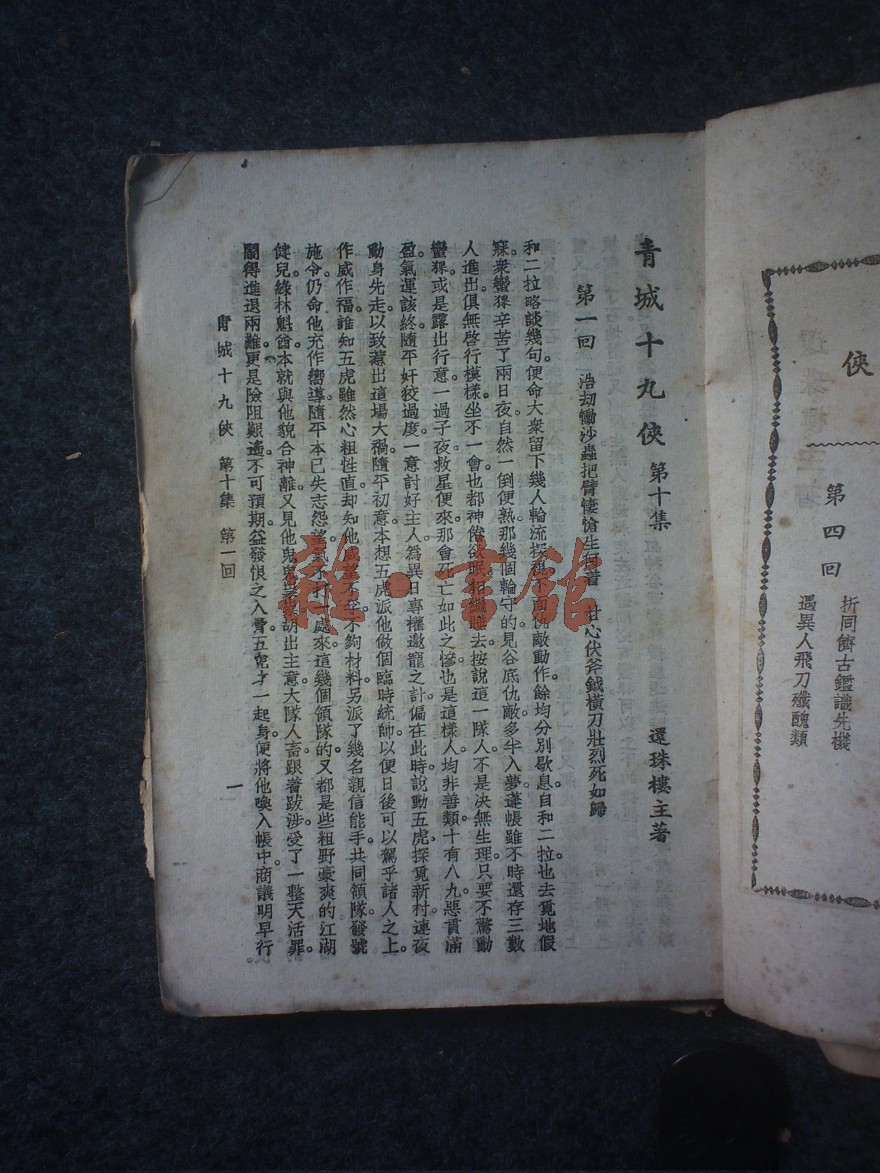 俠
第四回
折同儕古鑑識先機
遇異人飛刀殲醜類
青城十九俠 第十集
還珠樓主著
第一回 浩劫慟沙蟲把臂悽愴生 甘心伏斧鉞橫刀壯烈死如歸
和二拉略談幾句便命大衆留下幾人輪流探視不 仇敵動作餘均分別歇息自和二拉也去覓地假
寐衆蠻猓辛苦了兩日夜自然一倒便熟那幾個輪守的見谷底仇敵多半入夢蓬帳雖不時還存三數
人進出俱無啓行模樣坐不一會也都神倦欲眠相繼睡去按說這一隊人不是決無生理只要不驚動
蠻猓或是露出行意一過子夜救星便來那會死亡如此之慘也是這樣人均非善類十有八九惡貫滿
盈氣運該終隨平奸狡過度一意討好主人為異日專權邀寵之計偏在此時說動五虎探覓新村連夜
動身先走以致惹出這場大禍隨平初意本想五虎派他做個臨時統帥以便日後可以駕乎諸人之上
作威作福誰知五虎雖然心粗性直却知他 不夠材料另派了幾名親信能手共同領隊發號
施令仍命他充作嚮導隨平本已失志怨 氣不打 處來這幾個領隊的又都是些粗野豪爽的江湖
健兒綠林魁酋本就與他貌合神離又見他 胡出主意大隊人畜跟着跋涉受了一整天活罪
鬧得進退兩難更是險阻艱遙不可預期益發恨之入骨五 才一起身便將他喚入帳中商議明早行
青城十九俠 第十集 第一回
一
雜·書館